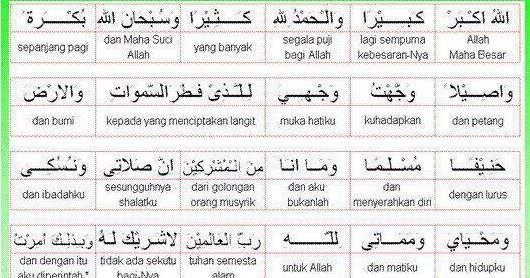 اللهُ اَكْبَرْ كَبِيْرًا وَالْحَمْدُ لِلّٰهِ كَثِيْرًا وَسُبْحَانَ اللهِ بُكْرَةً
Allah Maha Besar lagi sempurna kebesaran-Nya segala puji bagi Allah yang banyak dan Maha Suci Allah sepanjang pagi
وَاَصِيْلًا وَجَّهْتُ وَجْهِيَ لِلَّذِىْ فَطَرَ السَّمٰوَاتِ وَالْاَرْضَ
dan petang kuhadapkan muka hatiku kepada yang menciptakan langit dan bumi
حَنِيْفًا مُسْلِمًا وَمَا اَنَا مِنَ الْمُشْرِكِيْنَ اِنَّ صَلَاتِى وَنُسُكِى
dengan lurus dan menyerahkan diri dan aku bukanlah dari golongan orang musyrik sesungguhnya shalatku dan ibadahku
وَمَحْيَاىَ وَمَمَاتِى لِلّٰهِ رَبِّ الْعَالَمِيْنَ لَاشَرِيْكَ لَهُ وَبِذٰلِكَ اُمِرْتُ
dan hidupku dan matiku untuk Allah tuhan semesta alam tidak ada sekutu bagi-Nya dan dengan itu aku diperintah *